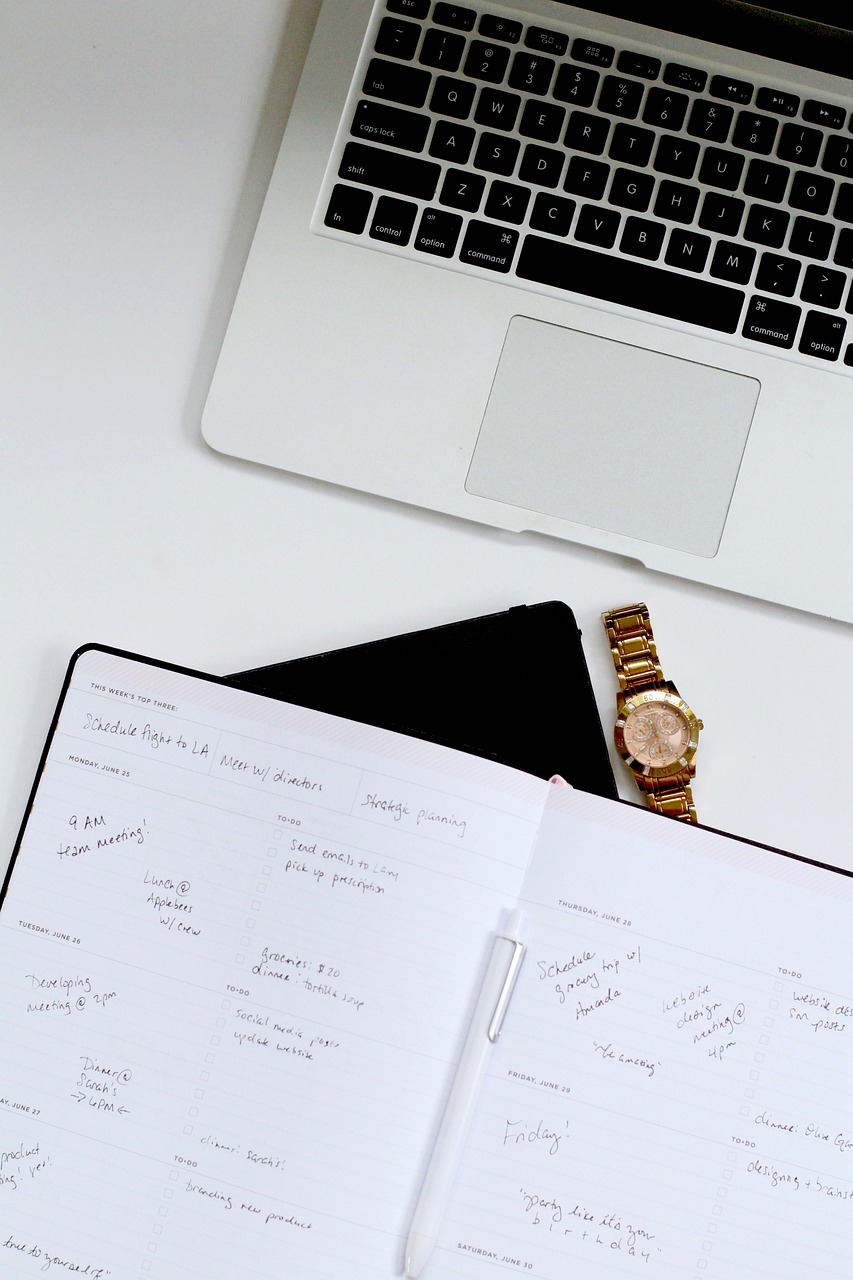 esc
~
`
!
1
@
2
#
3
$
4
%
5
^
6
&
7
*
8
(
9
)
0
tab
Q
W
E
R
T
Y
U
I
O
caps lock
A
S
D
F
G
H
J
K
L
shift
Z
X
C
V
B
N
M
<
,
>
.
fn
control
alt
option
⌘
command
⌘
command
alt
option
THIS WEEK'S TOP THREE:
Schedule flight to LA
Meet w/ directors
Strategic planning
MONDAY, JUNE 25
9 AM
team meeting!
Lunch @
Applebees
w/ crew
TO-DO
Send emails to
pick up prescription
groceries: $20
dinner: tortilla soup
TUESDAY, JUNE 26
Developing
meeting @ 2pm
Dinner @
Sarah's
→ 6PM ←
TO-DO
social media posts
update website
dinner: Sarah's!
AY, JUNE 27
product
ting! yes!
true to yourself"
TO-DO
branding new product
THURSDAY, JUNE 28
Schedule
grocery trip w/
Amanda
website
design
meeting @
4pm
"Be amazing"
TO-DO
website des
SM posts
dinner: Olive Gar
FRIDAY, JUNE 29
Friday!
"party like it's your
birthday"
TO-DO
designing + brainst
SATURDAY, JUNE 30